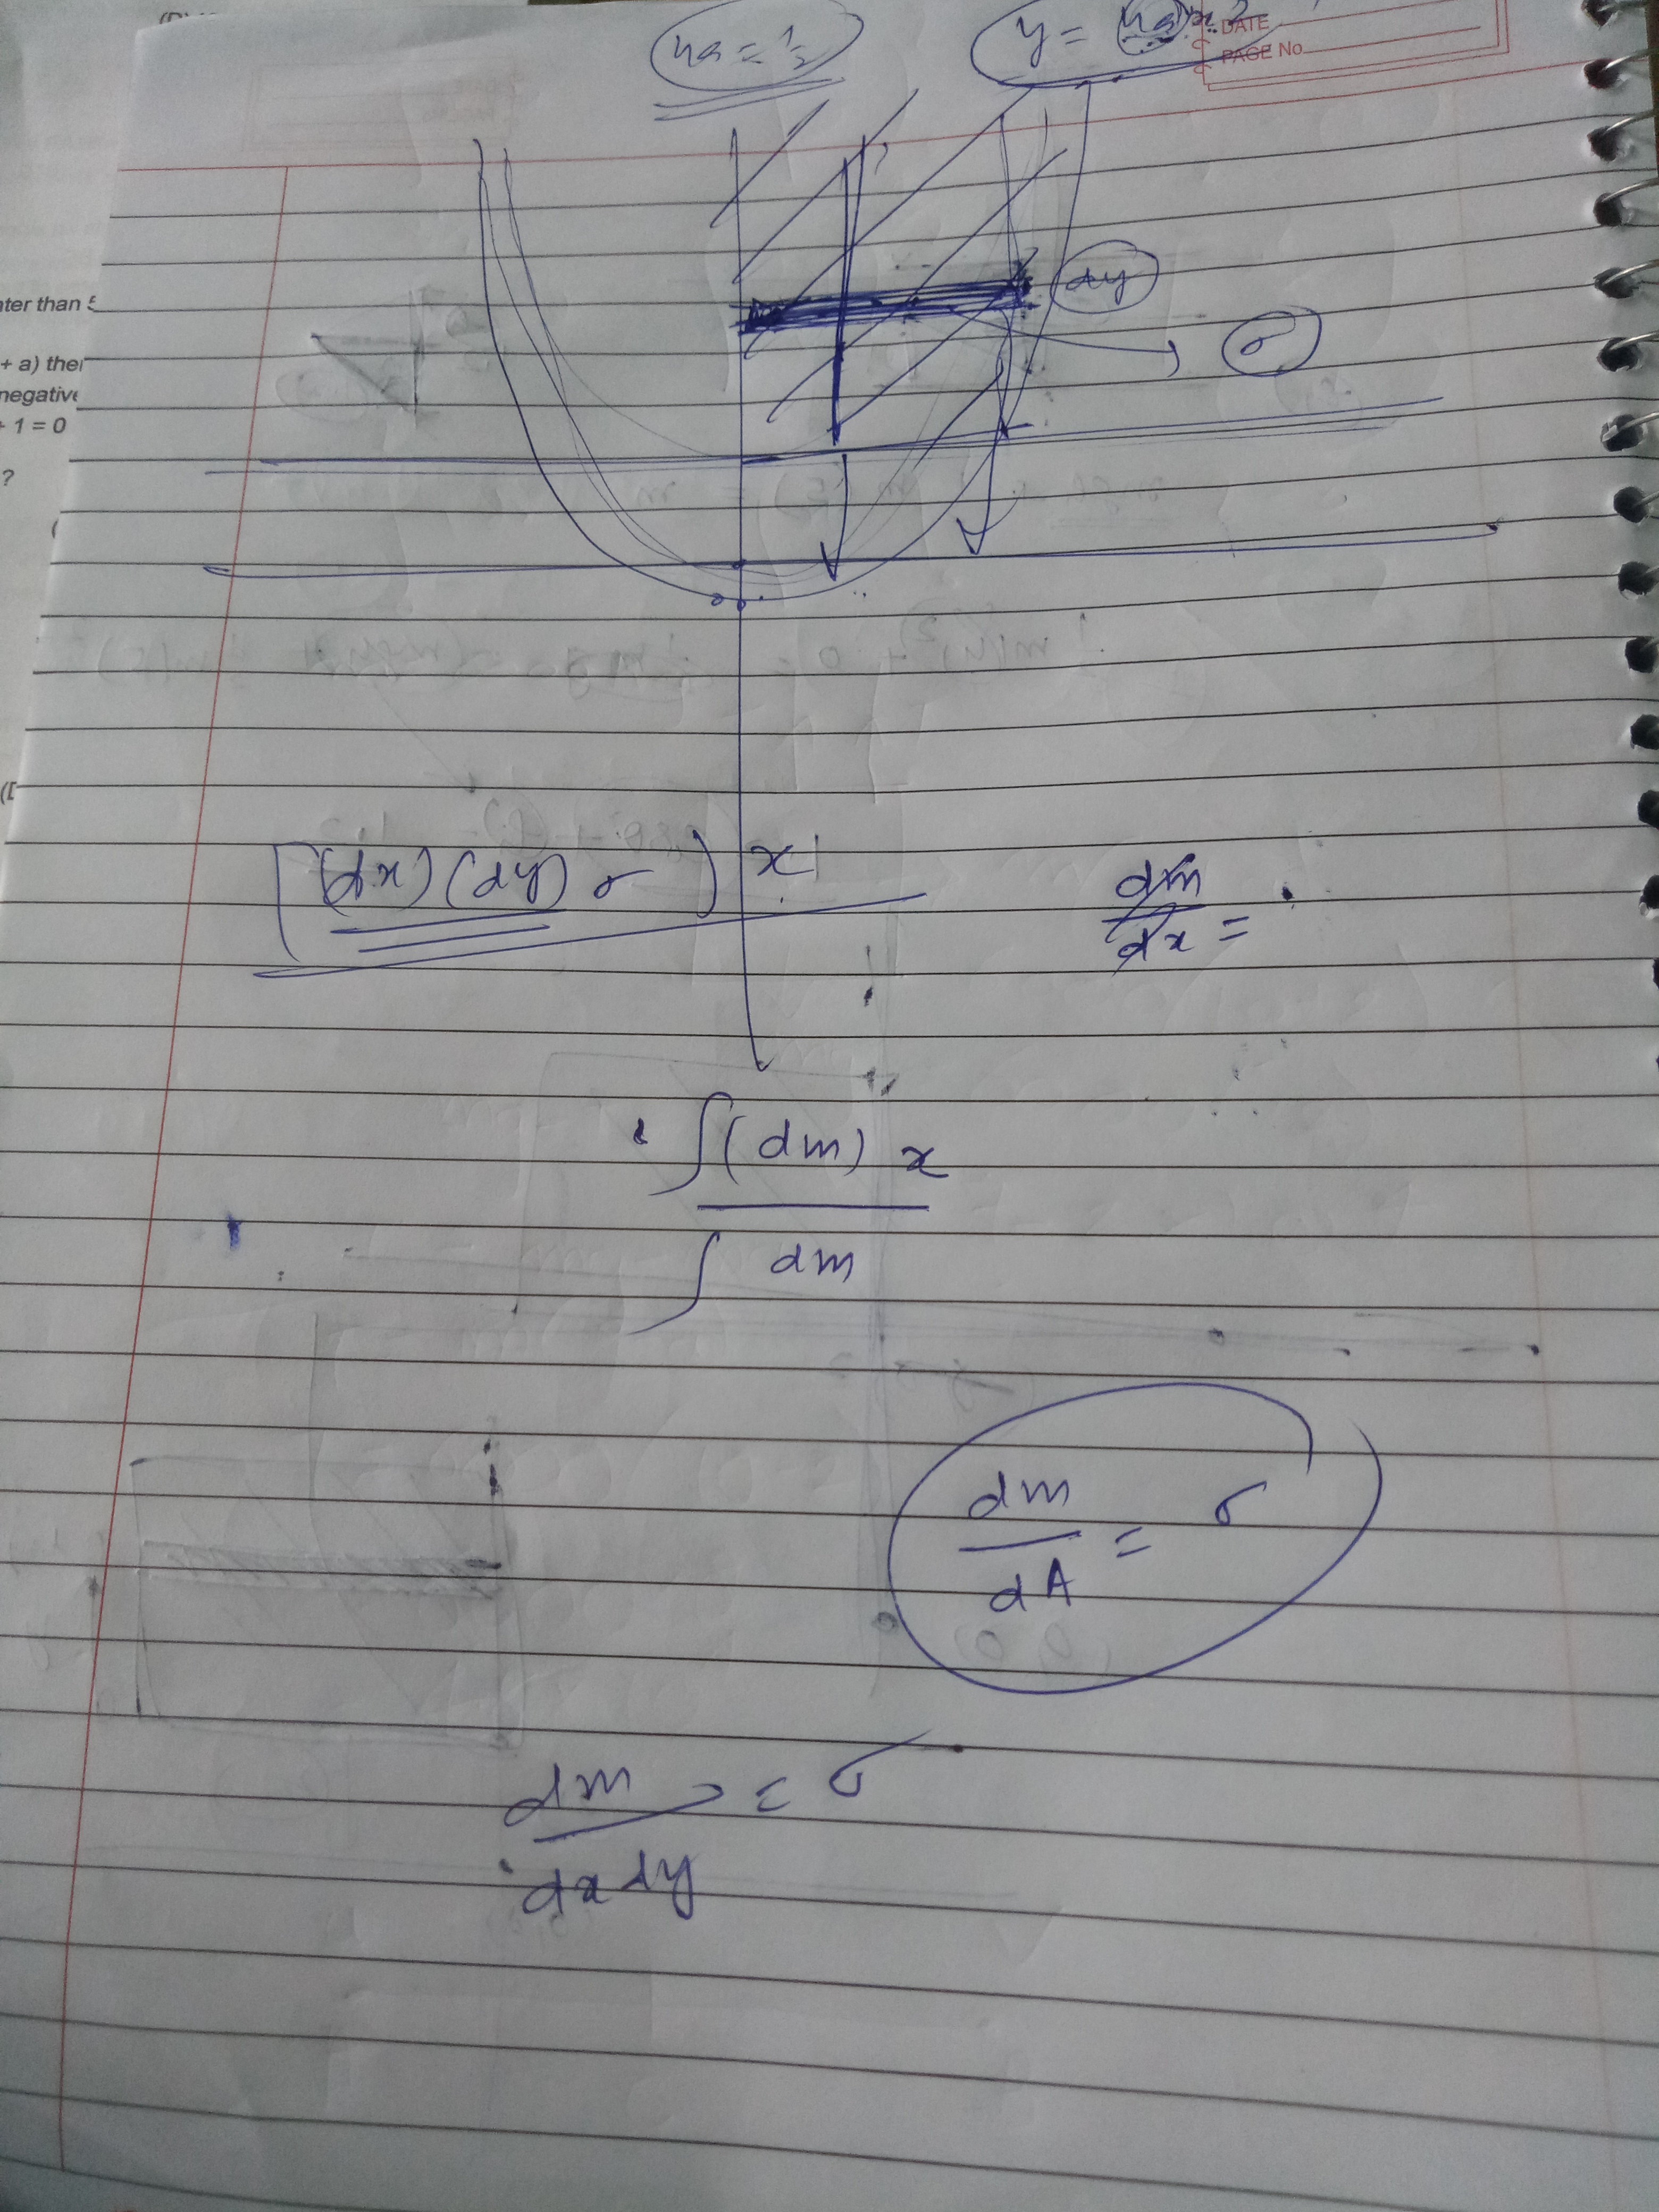 4a = 1/2
y = 4ax2
DATE
PAGE No.
dy
σ
ter than 5
+ a) then
negative
+ 1 = 0
?
[(dx) (dy) σ ) x
dm/dx =
∫(dm) x
∫ dm
dm/dA = σ
dm/dxdy = σ